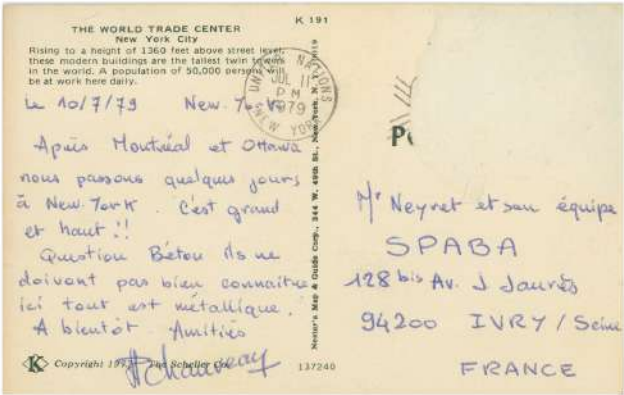 K 191
THE WORLD TRADE CENTER
New York City
Rising to a height of 1360 feet above street level,
these modern buildings are the tallest twin towers
in the world. A population of 50,000 persons will
be at work here daily.
UNITED NATIONS
JUL 11
PM
1979
NEW YORK
Le 10/7/79 New-York
Après Montréal et Ottawa
nous passons quelques jours
à New-York. C'est grand
et haut !!
Question Béton ils ne
doivent pas bien connaitre
ici tout est métallique.
A bientôt Amitiés
Copyright The Scheller Co.
Nester's Map & Guide Corp., 244 W. 49th St., New York, N.Y. 10019
137240
Mr Neyret et son équipe
SPABA
128 bis Av. J Jaurès
94200 IVRY / Seine
FRANCE